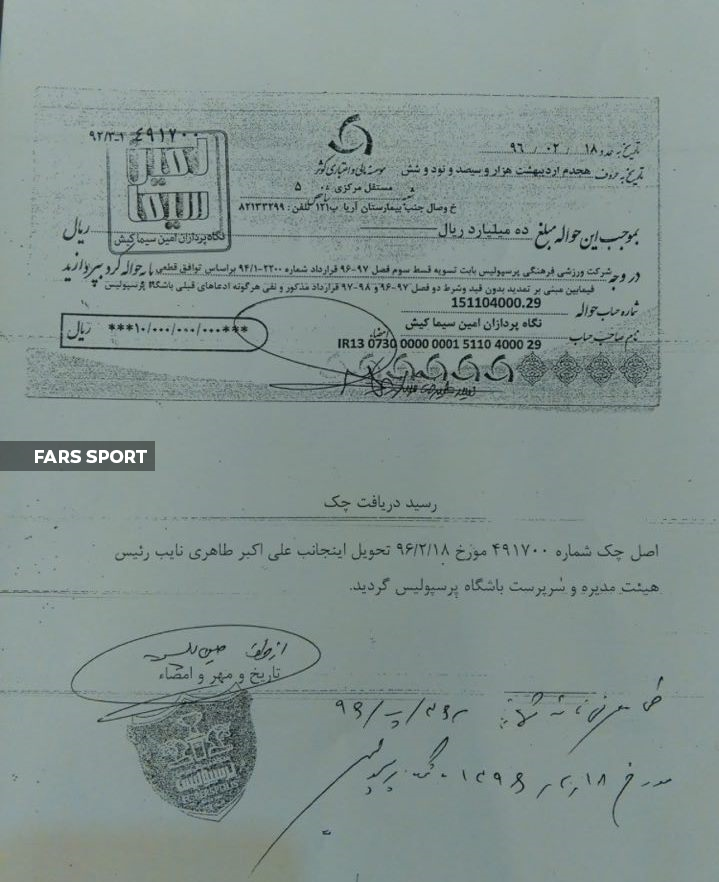 ۴۹۱۷۰۰
تاریخ به عدد ۱۸ / ۰۲ / ۹۶
موسسه مالی و اعتباری کوثر
تاریخ به حروف هجدهم اردیبهشت هزار و سیصد و نود و شش
شعبه مستقل مرکزی
خ وصال جنب بیمارستان آریا پ۱۲۱ تلفن: ۸۲۱۳۳۲۹۹
نگاه پردازان امین سیما کیش
بموجب این حواله مبلغ ده میلیارد ریال ریال
در وجه شرکت ورزشی فرهنگی پرسپولیس بابت تسویه قسط سوم فصل ۹۷-۹۶ قرارداد شماره ۲۲۰۰-۹۴/۱ براساس توافق قطعی با حواله کرد بپردازید
فیمابین مبنی بر تمدید بدون قید وشرط دو فصل ۹۷-۹۶ و ۹۸-۹۷ قرارداد مذکور و نفی هرگونه ادعاهای قبلی باشگاه پرسپولیس
شماره حساب حواله 151104000.29
نام صاحب حساب نگاه پردازان امین سیما کیش
امضاء
***۱۰/۰۰۰/۰۰۰/۰۰۰*** ریال
IR13 0730 0000 0001 5110 4000 29
FARS SPORT
رسید دریافت چک
اصل چک شماره ۴۹۱۷۰۰ مورخ ۹۶/۲/۱۸ تحویل اینجانب علی اکبر طاهری نایب رئیس
هیئت مدیره و سرپرست باشگاه پرسپولیس گردید.
از طرف
تاریخ و مهر و امضاء
مورخ ۱۸